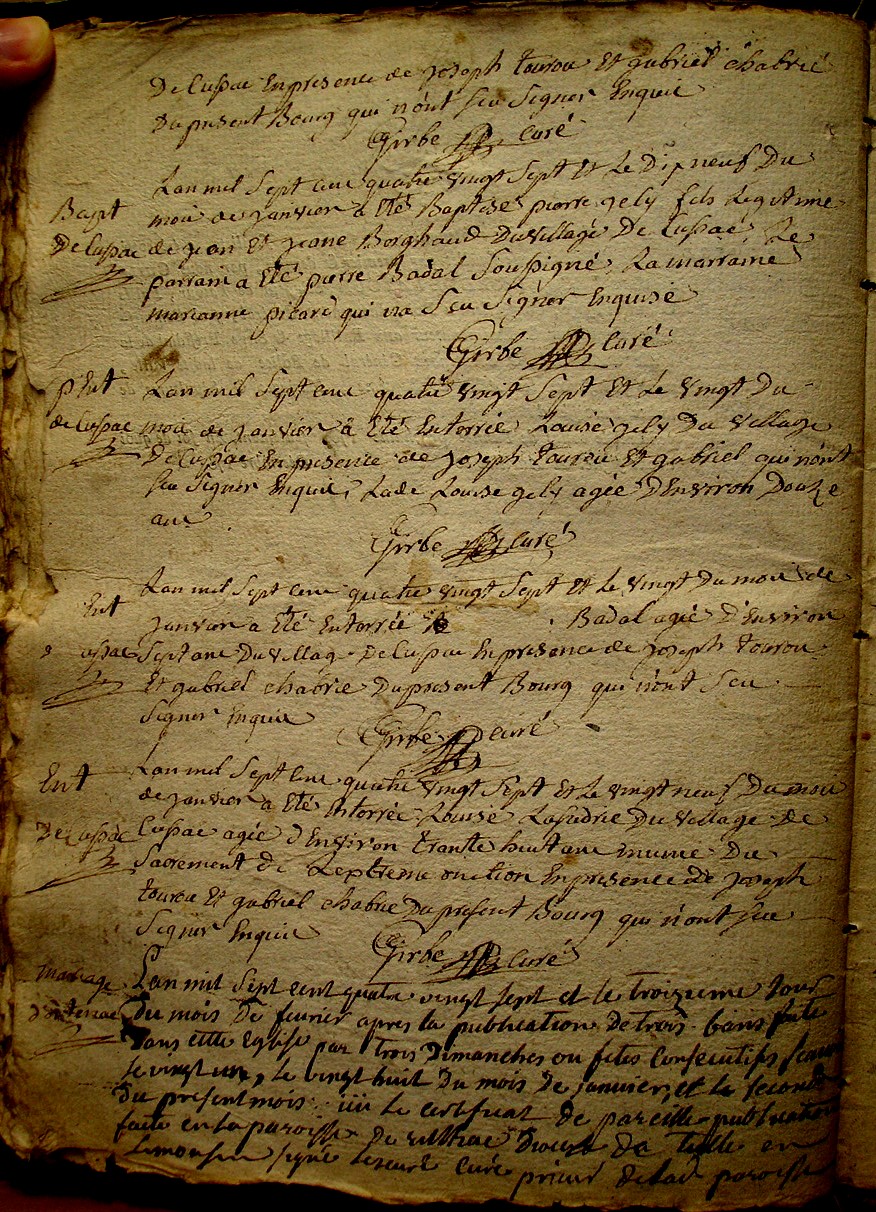 De Cussac En presence de Joseph tourou Et gabriel chabrié
Du present Bourg qui n'ont seu Signer Enquis
Girbe Curé
Lan mil Sept cens quatre vingt Sept Et Le Dix neuf Du
Bapt
mois de janvier à Eté Baptisé pierre gely fils Legitime
De Cussac
de jean Et jeane Borghaud Du village De Cussac, Le
parrain a Eté pierre Badal Soussigné, La marraine
marianne picard qui n'a Seu Signer Enquise
Girbe Curé
Ent
Lan mil Sept cens quatre vingt Sept Et Le vingt Du
de Cussac
mois de janvier à Eté Enterrée Louise gely Du village
De Cussac En presence de Joseph tourou Et gabriel qui n'ont
seu Signer Enquis, Lade Louise gely agée D'Environ Douze
ans
Girbe Curé
Lan mil Sept cens quatre vingt Sept Et Le vingt Du mois de
Ent
janvier a Eté Enterrée Badal agée D'Environ
ussac
Sept ans Du village De Cussac En presence de Joseph tourou
Et gabriel chabrie Du present Bourg qui n'ont Seu
Signer Enquis
Girbe Curé
Ent
Lan mil Sept cens quatre vingt Sept Et Le vingt neuf Du mois
de janvier à Eté Enterrée Louise Du village De
De Cussac
Cussac agée d'Environ trante huit ans munie Du
Sacrement de Lextreme onction En presence De Joseph
tourou Et gabriel chabrie Du present Bourg qui n'ont seu
Signer Enquis
Girbe Curé
mariage
Lan mil Sept cent quatre vingt sept et le troisieme Jour
du mois De fevrier apres la publication De trois bans faite
Dans cette Eglise par trois Dimanches ou fetes Consecutifs
le vingt un, le vingt huit Du mois De janvier, et le second
Du present mois, le certificat De pareille publication
faite en la paroisse De Diocese De tulle en
Limousin signé Curé prieur De lad paroisse